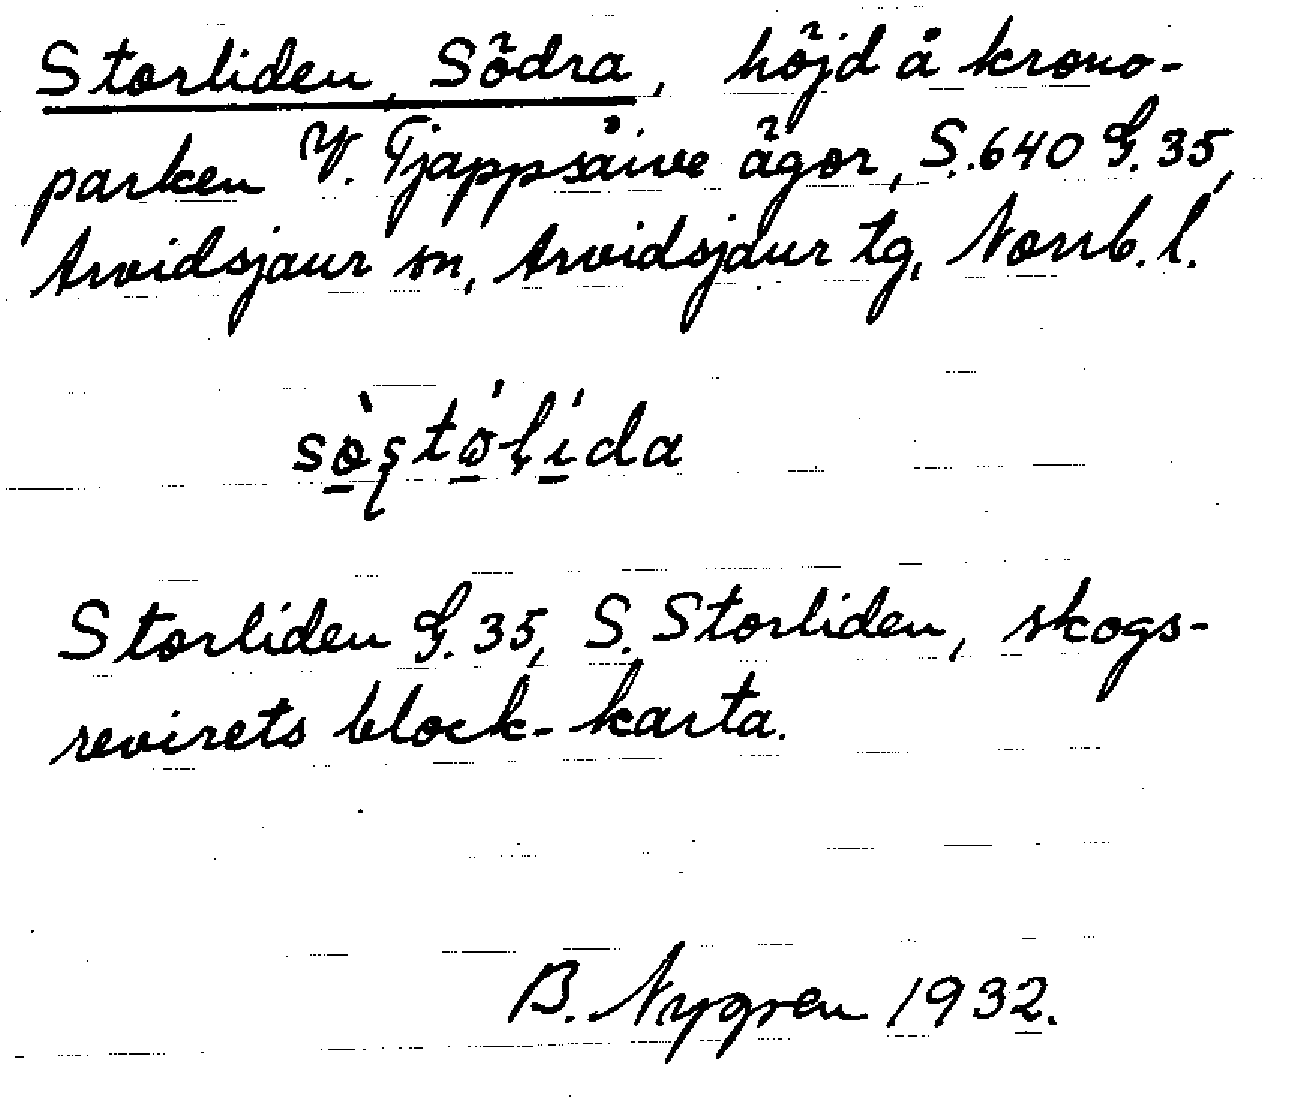 Storliden, Södra, höjd å krono-
parken V. Tjappsåive ägor, S. 640 G. 35,
Arvidsjaur sn, Arvidsjaur tg, Norrb. l.
Storliden G. 35, S. Storliden, skogs-
revirets block-karta.
B. Nygren 1932.